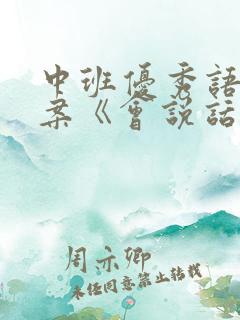 中班優秀語
案《會説話
周亦卿
未经同意禁止转载